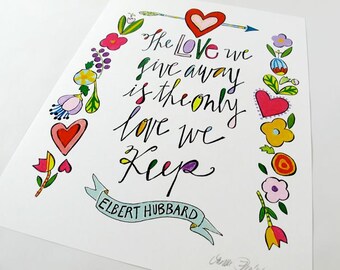 The LOVE we
give away
is the only
love we
Keep
ELBERT HUBBARD